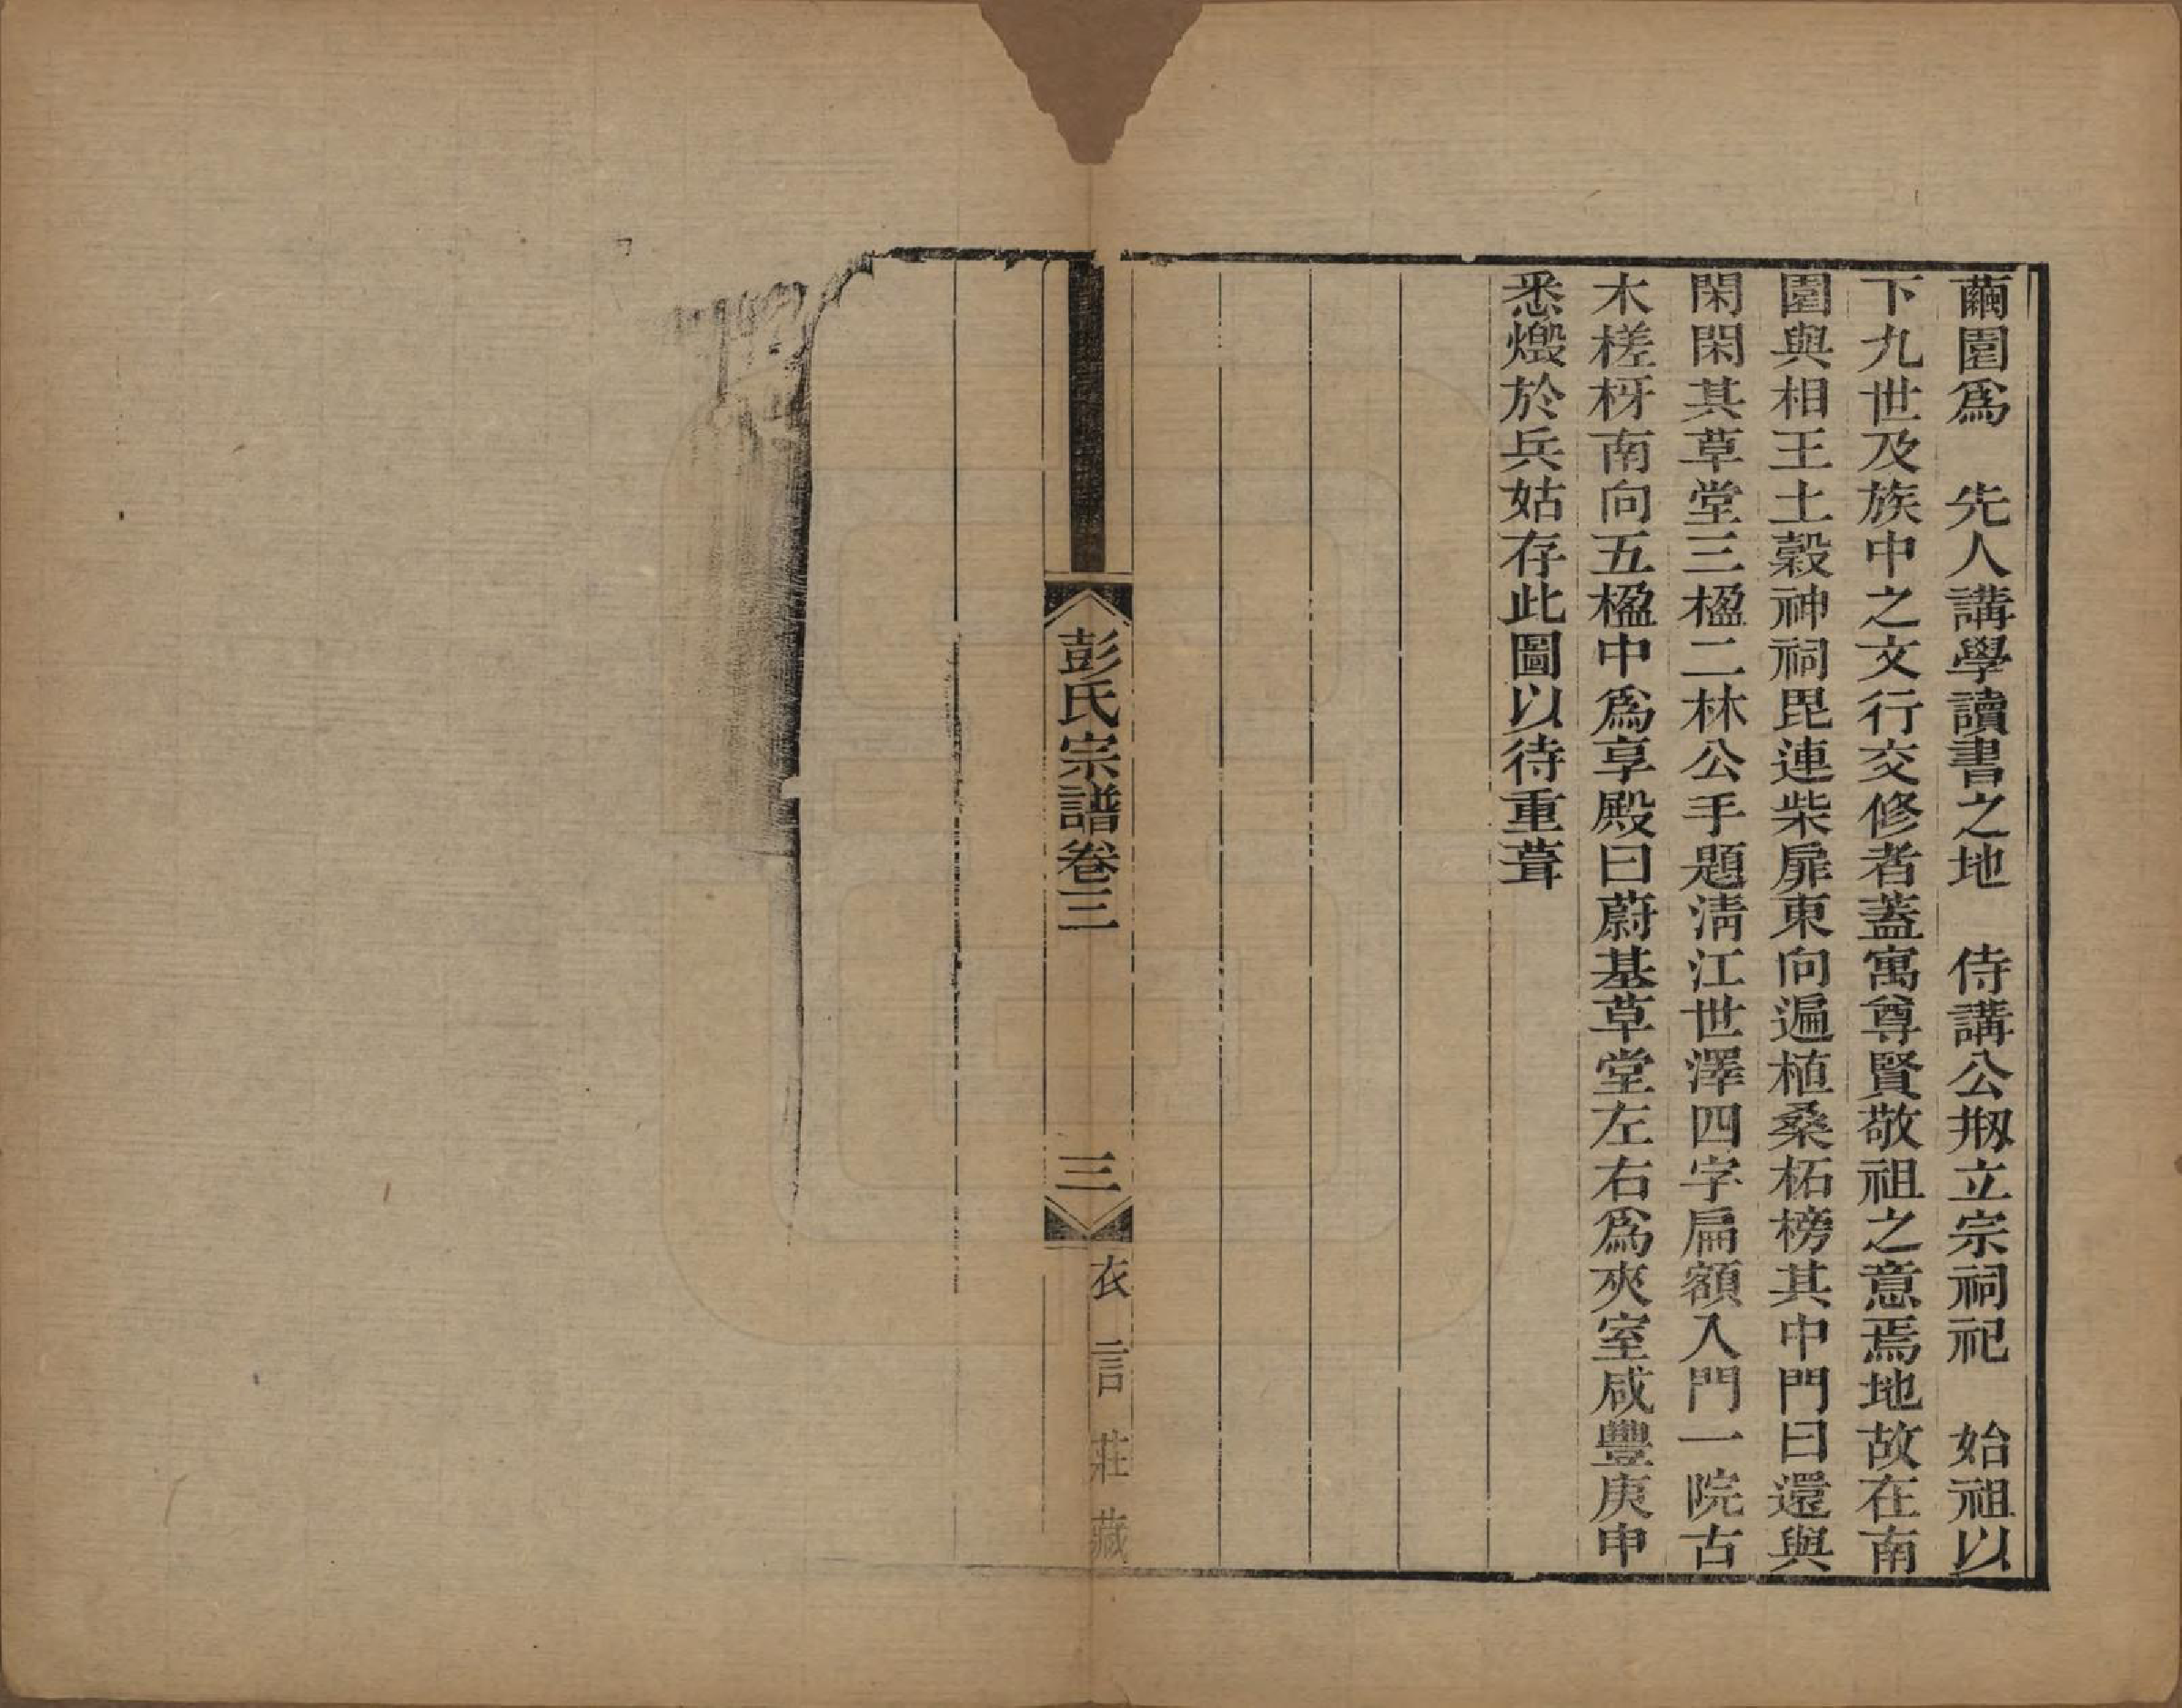 繭園爲　先人講學讀書之地　侍講公剏立宗祠祀　始祖以
下九世及族中之文行交修者蓋寓尊賢敬祖之意焉地故在南
園與相王土穀神祠毘連柴扉東向遍植桑柘榜其中門曰還與
閑閑其草堂三楹二林公手題淸江世澤四字扁額入門一院古
木槎枒南向五楹中爲享殿曰蔚基草堂左右爲夾室咸豐庚申
悉燬於兵姑存此圖以待重葺
彭氏宗譜卷三
三
衣言莊藏